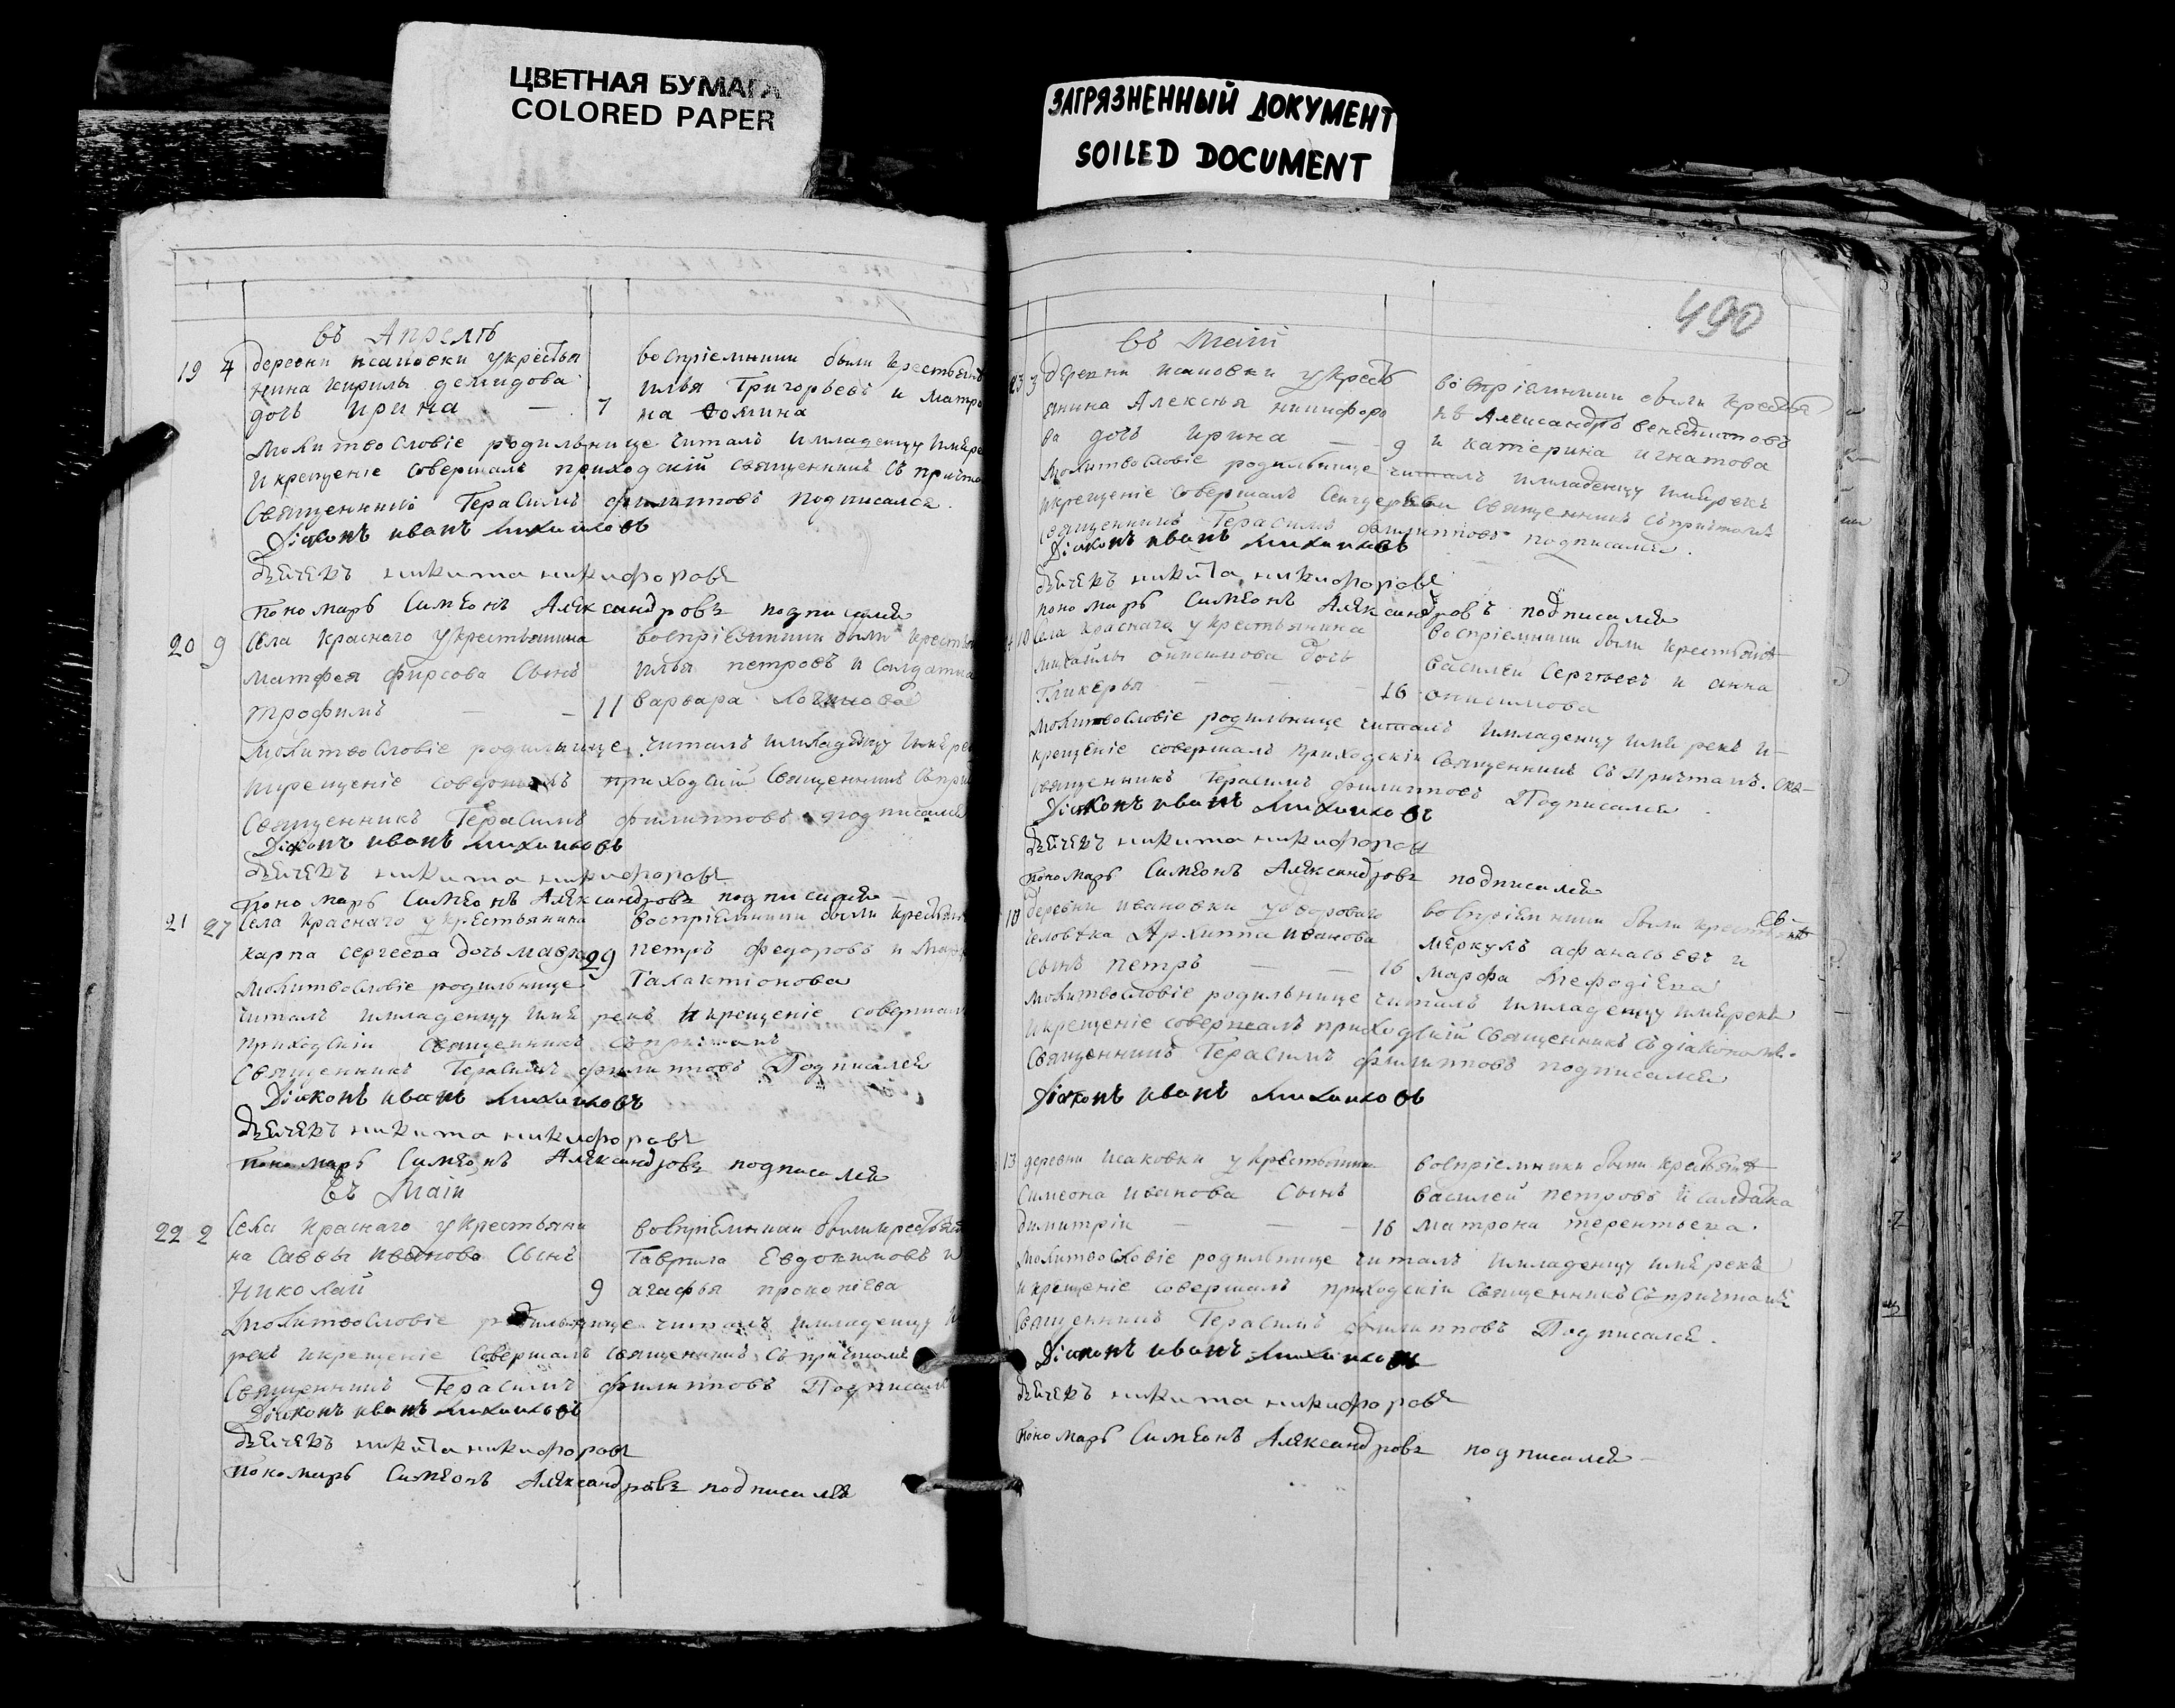 ЦВЕТНАЯ БУМАГА
COLORED PAPER
ЗАГРЯЗНЕННЫЙ ДОКУМЕНТ
SOILED DOCUMENT
въ Апрелѣ
19 4 деревни исаковки укрестья
нина кирилы демидова
дочь ирина — 7
воспріемники были крестьянѣ
илья Григорьевъ и матро
на Фомина
Молитвословіе родильнице читалъ имладенцу имя
и крещеніе совершалъ приходскій священникъ съ
Священникъ Герасимъ филипповъ подписался.
Діаконъ иванъ
Дьячекъ никита никифоровъ
пономарь Симеонъ Александровъ подписался
20 9 Села Краснаго укрестьянина
матфея фирсова Сынъ
трофимъ — 11
воспріемники были
илья петровъ и Салдатка
варвара
молитвословіе родильнице читалъ имладенцу
икрещеніе совершалъ приходскій Священникъ
Священникъ Герасимъ филипповъ подписался
Діаконъ иванъ
Дьячекъ никита никифоровъ
Пономарь Симеонъ Александровъ подписался
21 27 Села Краснаго укрестьянина
карпа сергеева дочь мавра 29
воспріемники были
петръ федоровъ и
Галактіонова
Молитвословіе родильнице
читалъ имладенцу имя рекъ и крещеніе совершалъ
приходскій священникъ съ причтомъ
Священникъ Герасимъ филипповъ Подписался
Діаконъ иванъ
Дьячекъ никита никифоровъ
пономарь Симеонъ Александровъ подписался
въ Маіи
22 2 Села Краснаго укрестьяни
на Саввы иванова Сынъ
Николай 9
воспріемники были
Гаврила Евдокимовъ и
агафья прокопіева
Молитвословіе родильнице читалъ имладенцу
рекъ икрещеніе совершалъ священникъ съ причтомъ
Священникъ Герасимъ филипповъ
Діаконъ иванъ
Дьячекъ никита никифоровъ
пономарь Симеонъ Александровъ подписался
490
въ Маіи
23 3 деревни исаковки укресть
янина Алексѣя никифоро
ва дочь ирина — 9
воспріемники были
Александръ венедиктовъ
и катерина игнатова
молитвословіе родильнице читалъ имладенцу имярекъ
икрещеніе совершалъ священникъ съ причтомъ
священникъ Герасимъ филипповъ подписался.
Діаконъ иванъ
Дьячекъ никита никифоровъ
пономарь Симеонъ Александровъ подписался
10 Села Краснаго укрестьянина
михайлы онисимова дочь
Гликерья — 16
воспріемники были крестьянѣ
Василей Сергѣевъ и анна
онисимова
молитвословіе родильнице читалъ имладенцу имя рекъ и
крещеніе совершалъ приходскіи Священникъ съ причтомъ.
священникъ Герасимъ филипповъ Подписался
Діаконъ иванъ
Дьячекъ никита никифоровъ
пономарь Симеонъ Александровъ подписался
10 деревни ивановки удвороваго
человѣка Архиппа иванова
сынъ петръ — 16
воспріемники были
меркулъ афанасьевъ и
марфа мефодіева
молитвословіе родильнице читалъ имладенцу имярекъ
икрещеніе совершалъ приходскій священникъ съ діакономъ.
Священникъ Герасимъ филипповъ подписался
Діаконъ иванъ
13 деревни исаковки укрестьянина
Симеона иванова Сынъ
димитріи — 16
воспріемники были крестьянѣ
василей петровъ и салдатка
матрона терентьева.
молитвословіе родильнице читалъ имладенцу имя рекъ
и крещеніе совершалъ приходскіи Священникъ съ причтомъ
Священникъ Герасимъ филипповъ Подписался.
Діаконъ иванъ
Дьячекъ никита никифоровъ
пономарь Симеонъ Александровъ подписался